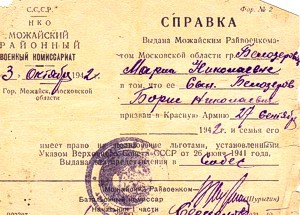 С.С.С.Р.
НКО
МОЖАЙСКИЙ
РАЙОННЫЙ
ВОЕННЫЙ КОМИССАРИАТ
3 октября 1942 г.
Гор. Можайск, Московской
области
Фор. № 2
СПРАВКА
Выдана Можайским Райвоенкоматом Московской области гр. Белозеровой
Марии Николаевне
в том, что ее сын Белозеров
Борис Николаевич
призван в Красную Армию 27 сентября
1942 г. и семья его
имеет право пользования льготами, установленными
Указом Верховного Совета СССР от 26 июня 1941 года.
Выдана для представления в Собес
Можайский Райвоенком
(Шурыгин)
Начальник части